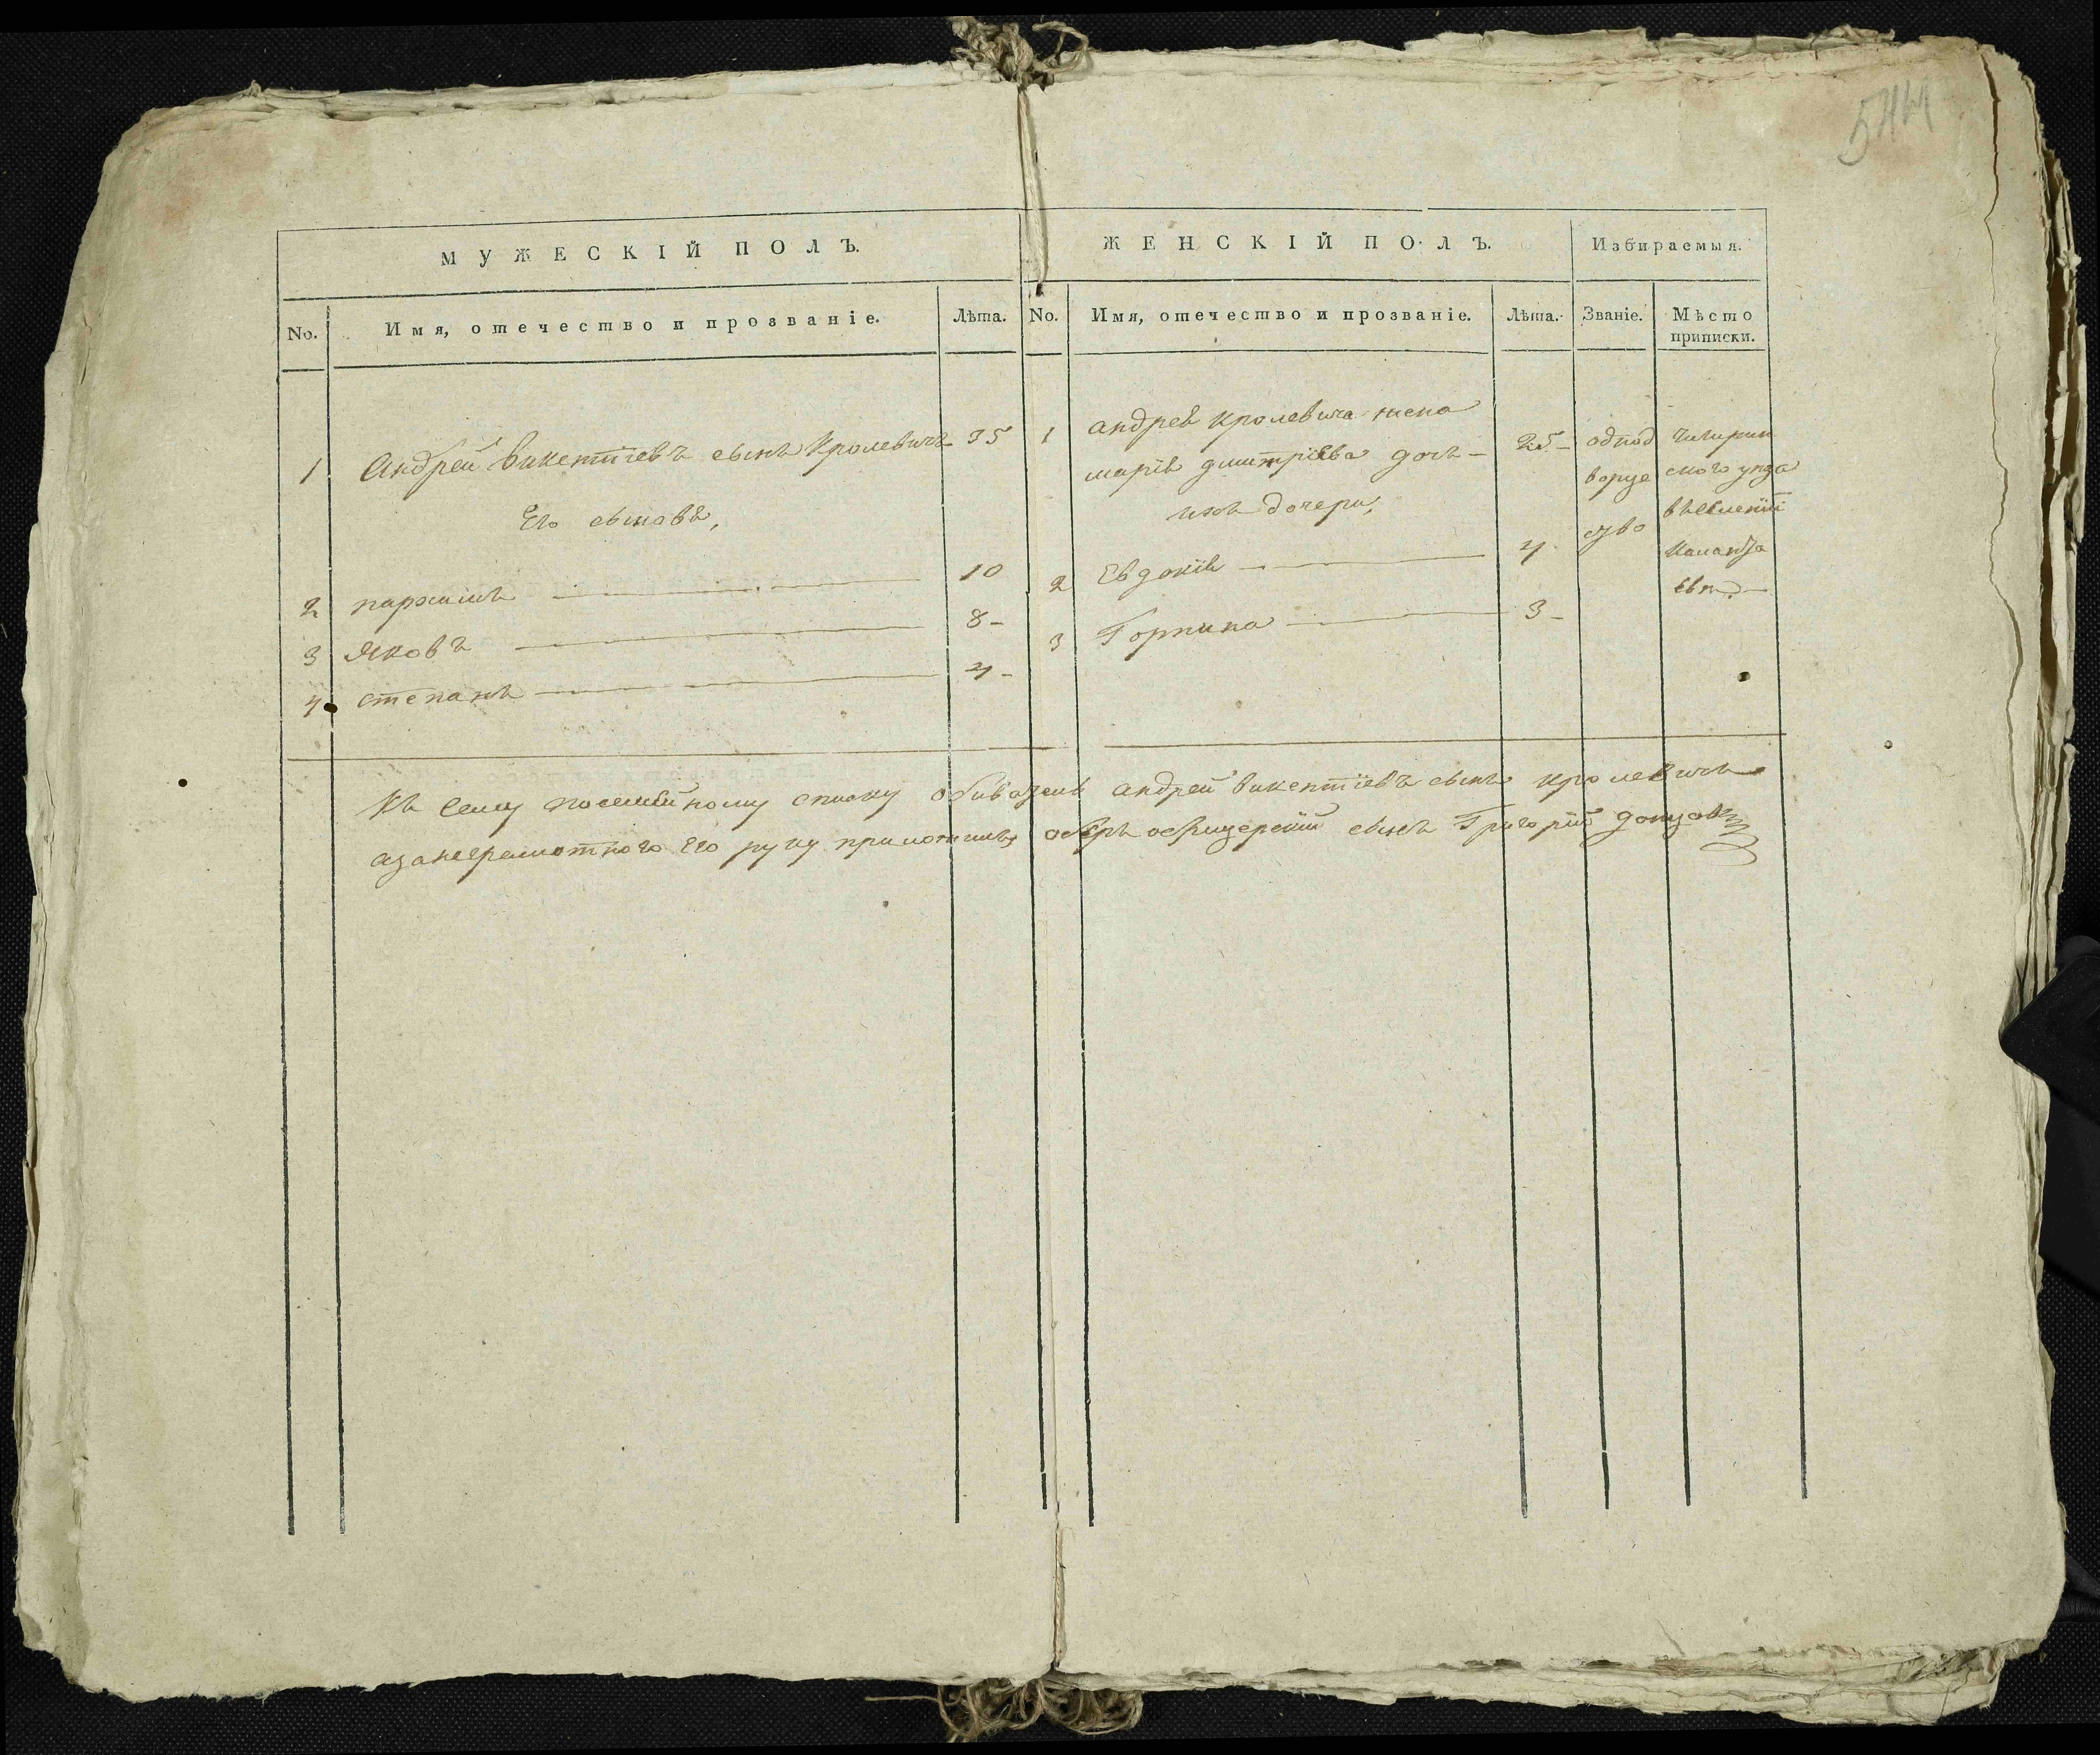 544
МУЖЕСКІЙ ПОЛЪ.
ЖЕНСКІЙ ПОЛЪ.
Избираемыя.
No.
Имя, отечество и прозваніе.
Лѣта.
No.
Имя, отечество и прозваніе.
Лѣта.
Званіе.
Мѣсто
приписки.
1 Андрей викентіевъ сынъ Кролевичъ 35
Его сыновѣ,
2 10
3 Яковъ 8
4 степанъ 4
1 андрея кролевича жена
марія дмитріева дочь 25
ихъ дочери,
2 Евдокія 4
3 Горпина 3
однод
ворце
ство
чигирин
ского уѣзда
Къ сему посемейному списку андрей викентіевъ сынъ кролевичъ
азанеграмотного его руку приложилъ оберъ офицерскій сынъ Григорій